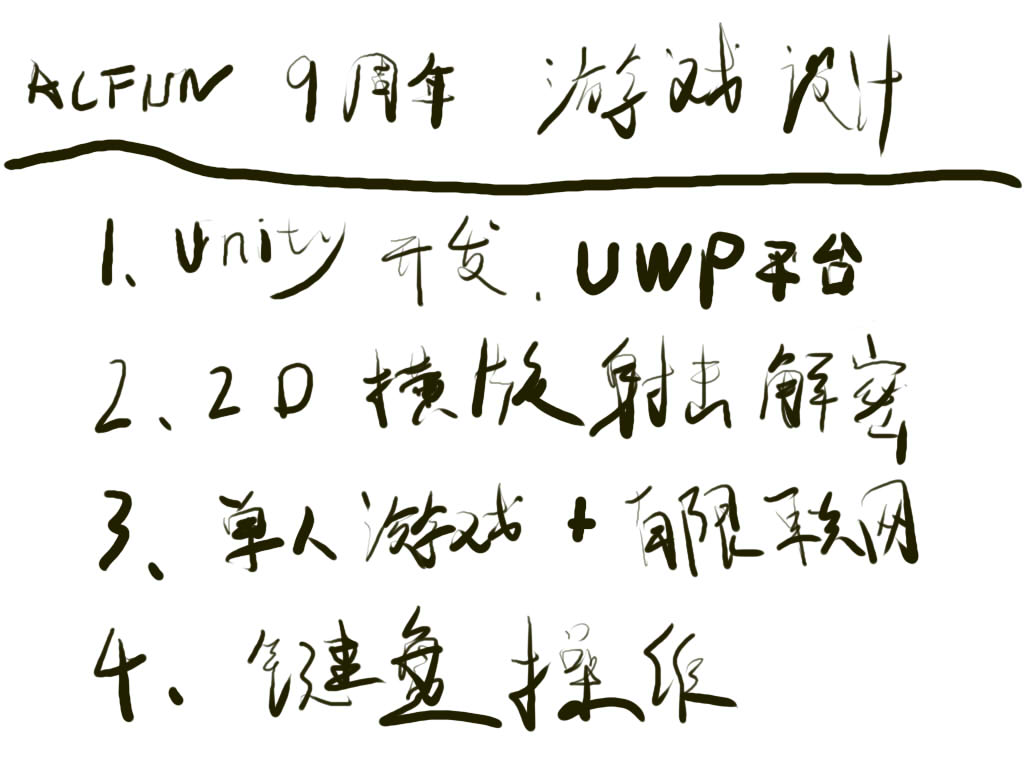 ACFUN 9周年 游戏设计
1、Unity 开发. UWP平台
2、2D 横版射击解密
3、单人游戏 + 有限联网
4、键盘操纵